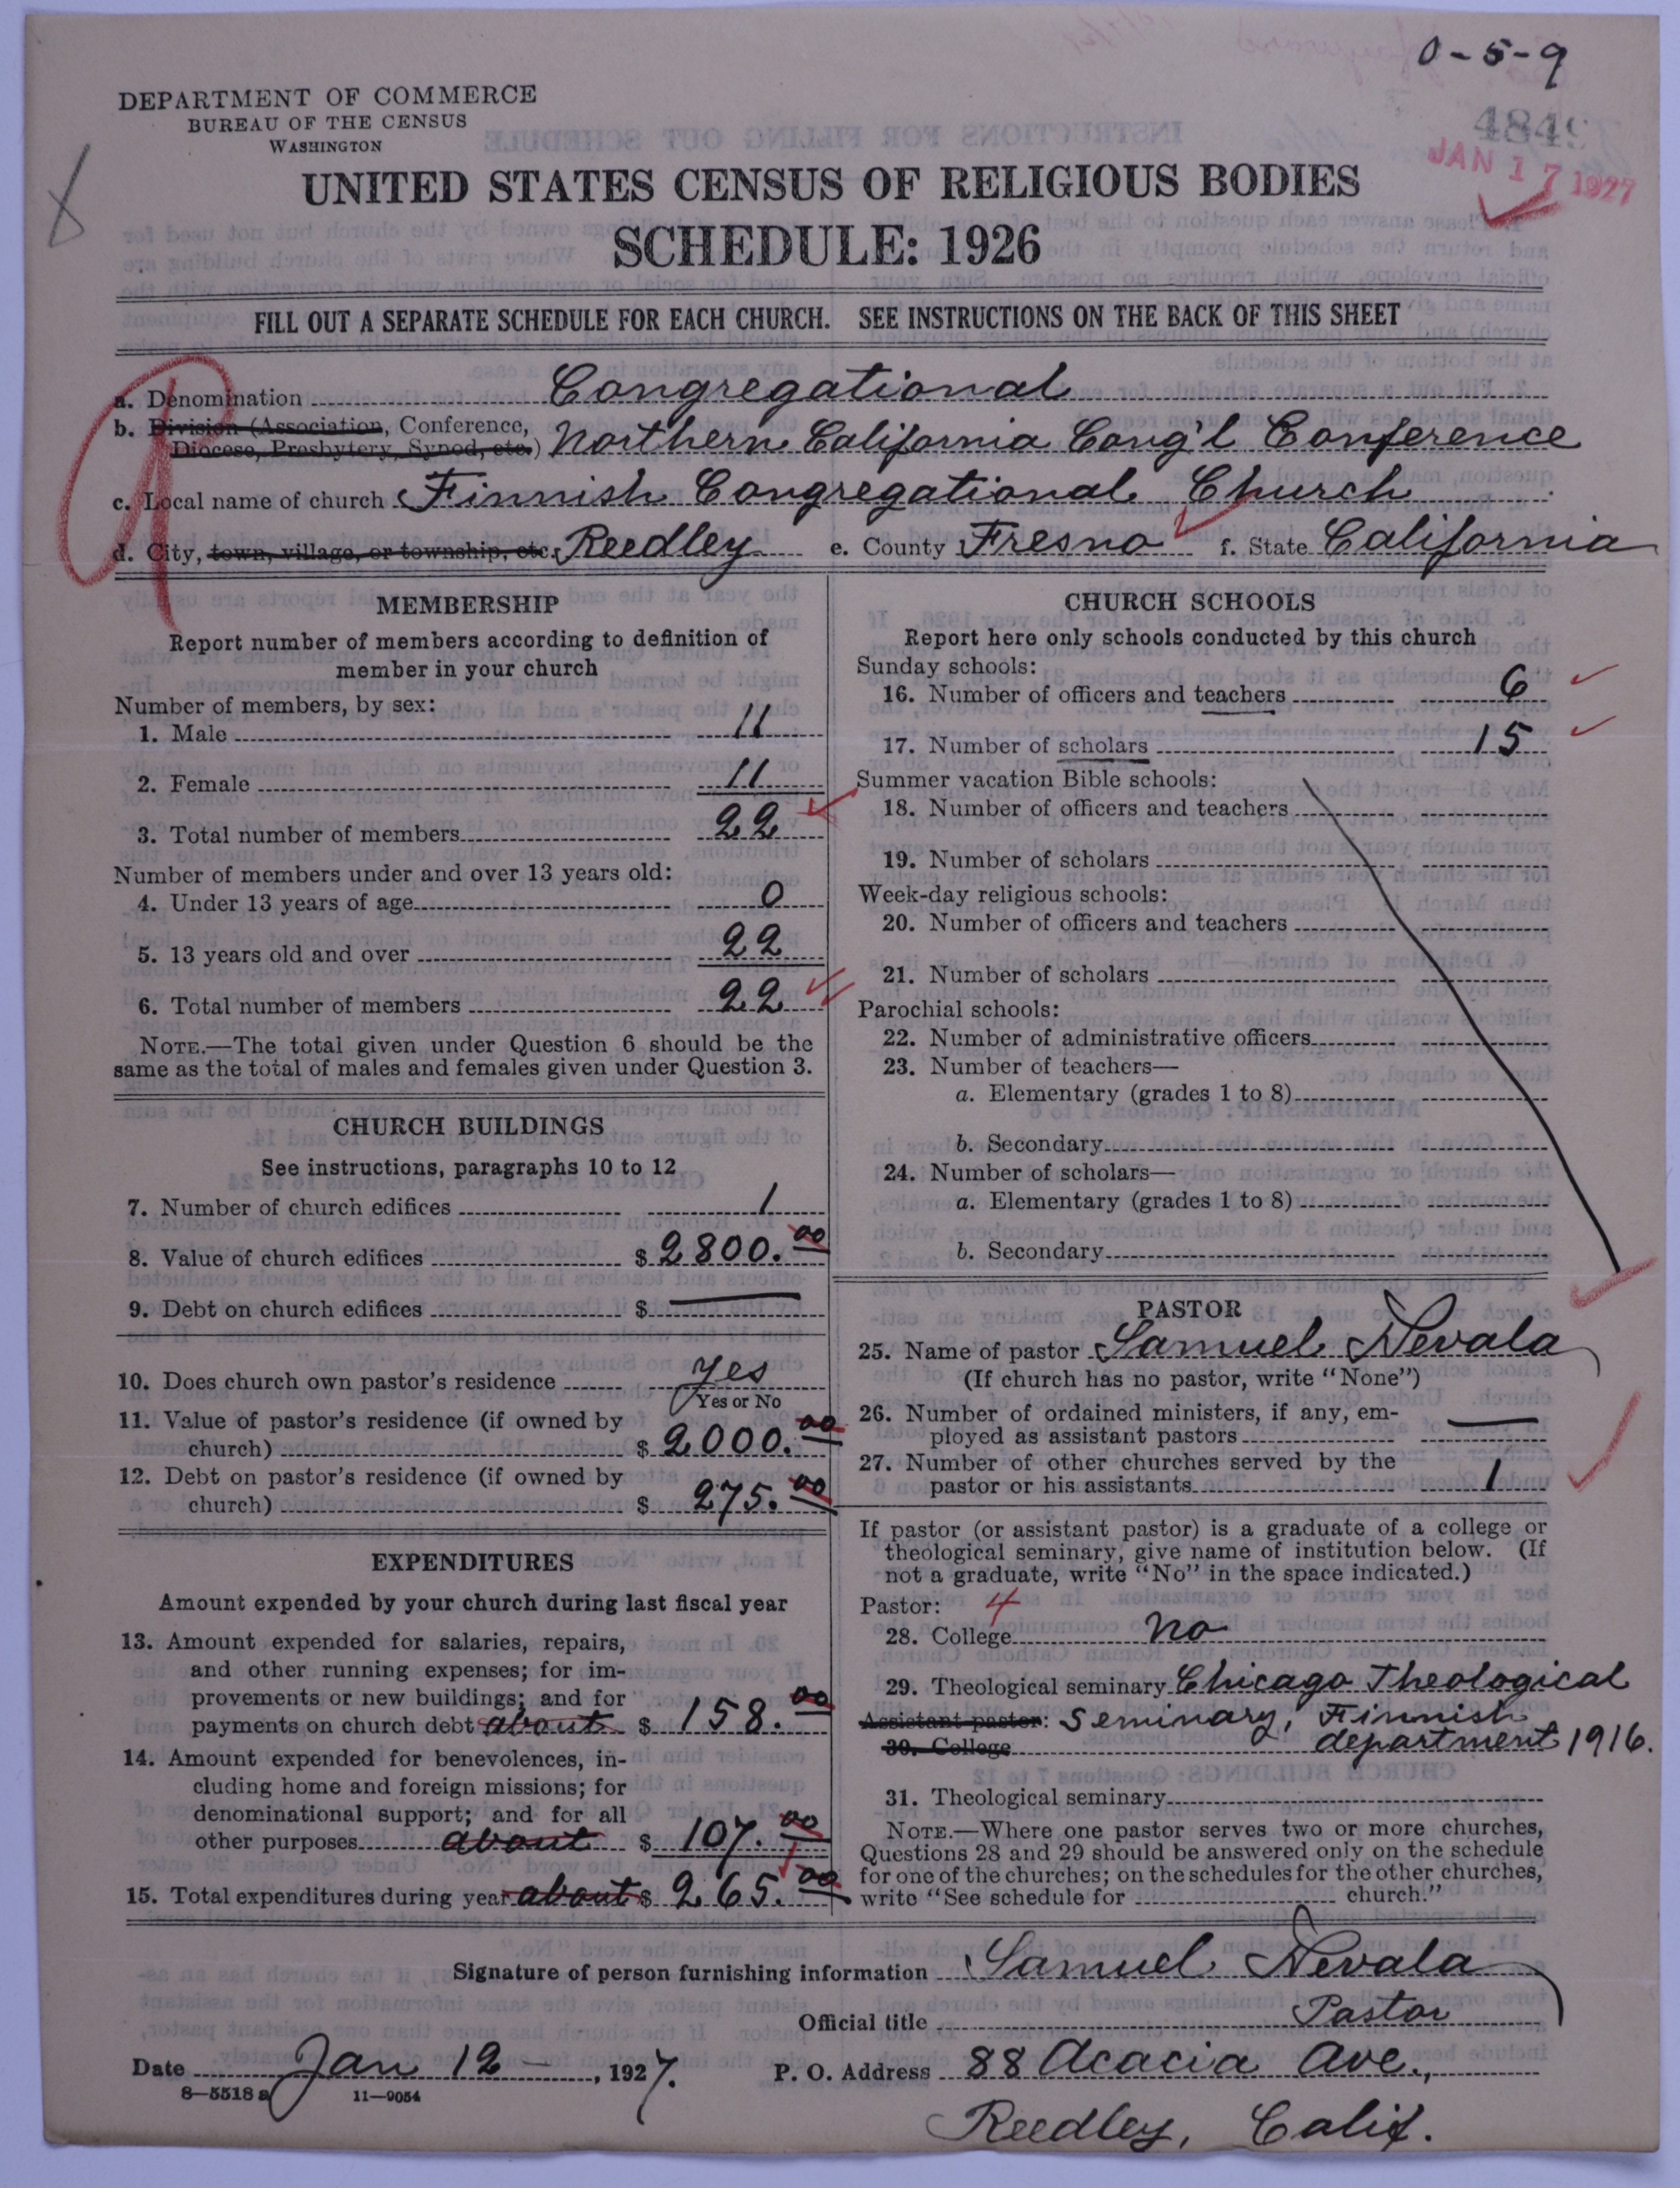 0-5-9
DEPARTMENT OF COMMERCE
BUREAU OF THE CENSUS
WASHINGTON
4849
JAN 17 1927
UNITED STATES CENSUS OF RELIGIOUS BODIES
SCHEDULE: 1926
FILL OUT A SEPARATE SCHEDULE FOR EACH CHURCH. SEE INSTRUCTIONS ON THE BACK OF THIS SHEET
a. Denomination Congregational
b. Division (Association, Conference,
Diocese, Presbytery, Synod, etc.) Northern California Cong'l Conference
c. Local name of church Finnish Congregational Church
d. City, town, village, or township, etc. Reedley e. County Fresno f. State California
MEMBERSHIP
Report number of members according to definition of
member in your church
Number of members, by sex:
1. Male 11
2. Female 11
3. Total number of members 22
Number of members under and over 13 years old:
4. Under 13 years of age 0
5. 13 years old and over 22
6. Total number of members 22
NOTE.—The total given under Question 6 should be the
same as the total of males and females given under Question 3.
CHURCH BUILDINGS
See instructions, paragraphs 10 to 12
7. Number of church edifices 1
8. Value of church edifices $ 2800.00
9. Debt on church edifices $ —
10. Does church own pastor's residence Yes
Yes or No
11. Value of pastor's residence (if owned by
church) $ 2000.00
12. Debt on pastor's residence (if owned by
church) $ 275.00
EXPENDITURES
Amount expended by your church during last fiscal year
13. Amount expended for salaries, repairs,
and other running expenses; for im-
provements or new buildings; and for
payments on church debt about $ 158.00
14. Amount expended for benevolences, in-
cluding home and foreign missions; for
denominational support; and for all
other purposes about $ 107.00
15. Total expenditures during year about $ 265.00
CHURCH SCHOOLS
Report here only schools conducted by this church
Sunday schools:
16. Number of officers and teachers 6
17. Number of scholars 15
Summer vacation Bible schools:
18. Number of officers and teachers
19. Number of scholars
Week-day religious schools:
20. Number of officers and teachers
21. Number of scholars
Parochial schools:
22. Number of administrative officers
23. Number of teachers—
a. Elementary (grades 1 to 8)
b. Secondary
24. Number of scholars—
a. Elementary (grades 1 to 8)
b. Secondary
PASTOR
25. Name of pastor Samuel Nevala
(If church has no pastor, write "None")
26. Number of ordained ministers, if any, em-
ployed as assistant pastors —
27. Number of other churches served by the
pastor or his assistants 1
If pastor (or assistant pastor) is a graduate of a college or
theological seminary, give name of institution below. (If
not a graduate, write "No" in the space indicated.)
Pastor: 4
28. College No
29. Theological seminary Chicago Theological
Assistant pastor: Seminary, Finnish
30. College department 1916.
31. Theological seminary
NOTE.—Where one pastor serves two or more churches,
Questions 28 and 29 should be answered only on the schedule
for one of the churches; on the schedules for the other churches,
write "See schedule for church."
Signature of person furnishing information Samuel Nevala
Official title Pastor
Date Jan 12 —, 1927. P. O. Address 88 Acacia Ave.,
8—5518 a 11—9054
Reedley, Calif.